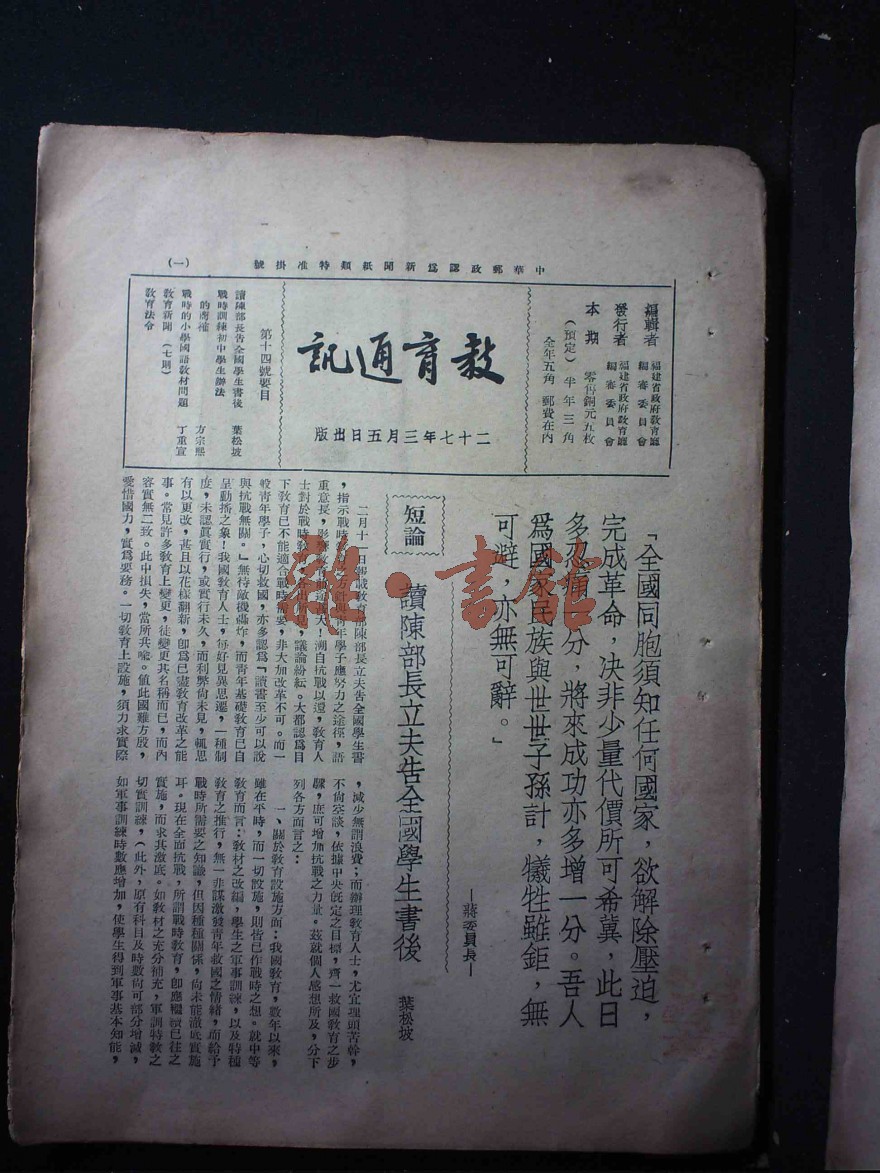 中華郵政認爲新聞紙類特准掛號
(一)
編輯者 福建省政府教育廳編審委員會
發行者 福建省政府教育廳編審委員會
本期 零售銅元五枚
(預定) 半年三角
全年五角 郵費在內
教育通訊
二十七年三月五日出版
第十四號要目
讀陳部長告全國學生書後 葉松坡
戰時訓練初中學生辦法
的商榷 方宗熙
戰時的小學國語教材問題 丁重宣
教育新聞(七則)
教育法令
「全國同胞須知任何國家,欲解除壓迫,
完成革命,決非少量代價所可希冀,此日
多忍痛一分,將來成功亦多增一分。吾人
爲國家民族與世世子孫計,犧牲雖鉅,無
可避,亦無可辭。」
—蔣委員長—
短論
讀陳部長立夫告全國學生書後
葉松坡
二月十一日報載教育部陳部長立夫告全國學生書
,指示戰時教育方針與青年學子應努力之途徑,語
重意長,影響教育前途甚大!溯自抗戰以還,教育人
士對於戰時教育各出所見,議論紛紜。大都認爲目
下教育已不能適合戰時需要,非大加改革不可。而一
般青年學子,心切救國,亦多認爲「讀書至少可以說
與抗戰無關。」無待敵機轟炸,而青年基礎教育已自
呈動搖之象!我國教育人士,每好見異思遷,一種制
度,未認眞實行,或實行未久,而利弊尙未見,輒思
有以更改,甚且以花樣翻新,卽爲已盡教育改革之能
事。常見許多教育上變更,徒變更其名稱而已,而內
容實無二致。此中損失,當所共喩。值此國難方殷,
愛惜國力,實爲要務。一切教育上設施,須力求實際
,減少無謂浪費;而辦理教育人士,尤宜埋頭苦幹,
不尙空談,依據中央旣定之目標,齊一救國教育之步
驟,庶可增加抗戰之力量。茲就個人感想所及,分下
列各方面言之:
一、關於教育設施方面:我國教育,數年以來,
雖在平時,而一切設施,則皆已作戰時之想。就中等
教育而言:教材之改編,學生之軍事訓練,以及特種
教育之推行,無一非謀激發青年救國之情緒,而給予
戰時所需要之知識,但因種種關係,尙未能澈底實施
耳。現在全面抗戰,所謂戰時教育,卽應繼續已往之
實施,而求其澈底。如教材之充分補充,軍訓特教之
切實訓練,(此外,原有科目及時數尙可部分增減,
如軍事訓練時數應增加,使學生得到軍事基本知能,
龍·書館